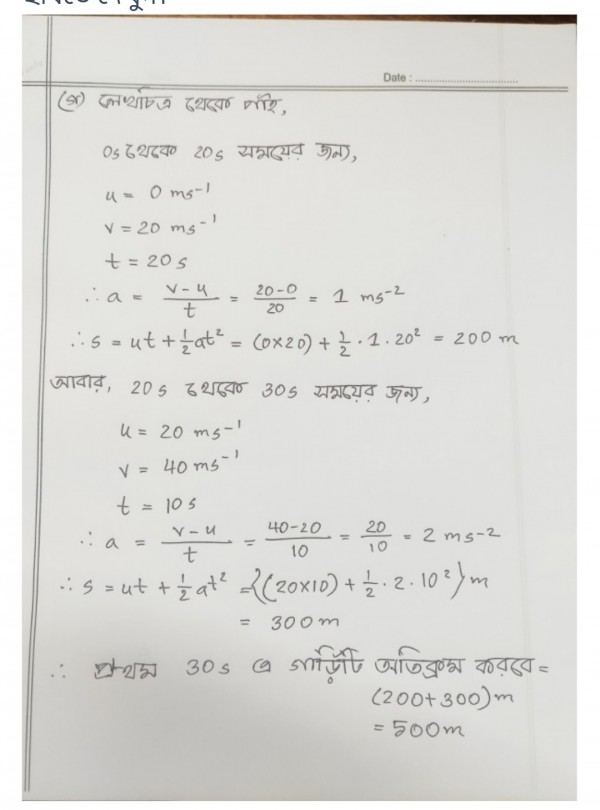 Date :
(গ) লেখচিত্র থেকে পাই,
0s থেকে 20s সময়ের জন্য,
u = 0 ms⁻¹
v = 20 ms⁻¹
t = 20 s
∴ a = (v-u)/t = (20-0)/20 = 1 ms⁻²
∴ s = ut + ½at² = (0×20) + ½·1·20² = 200 m
আবার, 20s থেকে 30s সময়ের জন্য,
u = 20 ms⁻¹
v = 40 ms⁻¹
t = 10 s
∴ a = (v-u)/t = (40-20)/10 = 20/10 = 2 ms⁻²
∴ s = ut + ½at² = {(20×10) + ½·2·10²} m
= 300 m
∴ প্রথম 30s এ গাড়িটি অতিক্রম করবে =
(200+300) m
= 500m